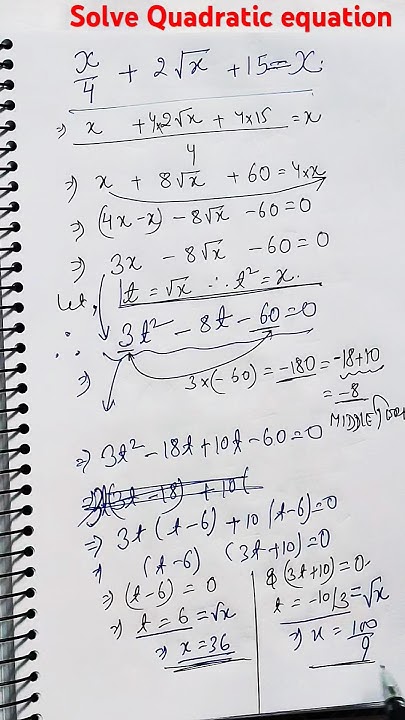 Solve Quadratic equation
x/4 + 2√x + 15 = x.
⇒ (x + 4×2√x + 4×15)/4 = x
⇒ x + 8√x + 60 = 4×x
⇒ (4x-x) - 8√x - 60 = 0
⇒ 3x - 8√x - 60 = 0
let, t = √x ∴ t² = x.
∴ 3t² - 8t - 60 = 0
⇒ 3×(-60) = -180 = -18+10
= -8
MIDDLE
⇒ 3t² - 18t + 10t - 60 = 0
⇒ 3t (t-6) + 10 (t-6) = 0
⇒ (t-6) (3t+10) = 0
⇒ (t-6) = 0
⇒ t = 6 = √x
⇒ x = 36
(3t+10) = 0.
t = -10/3 = √x
⇒ x = 100/9